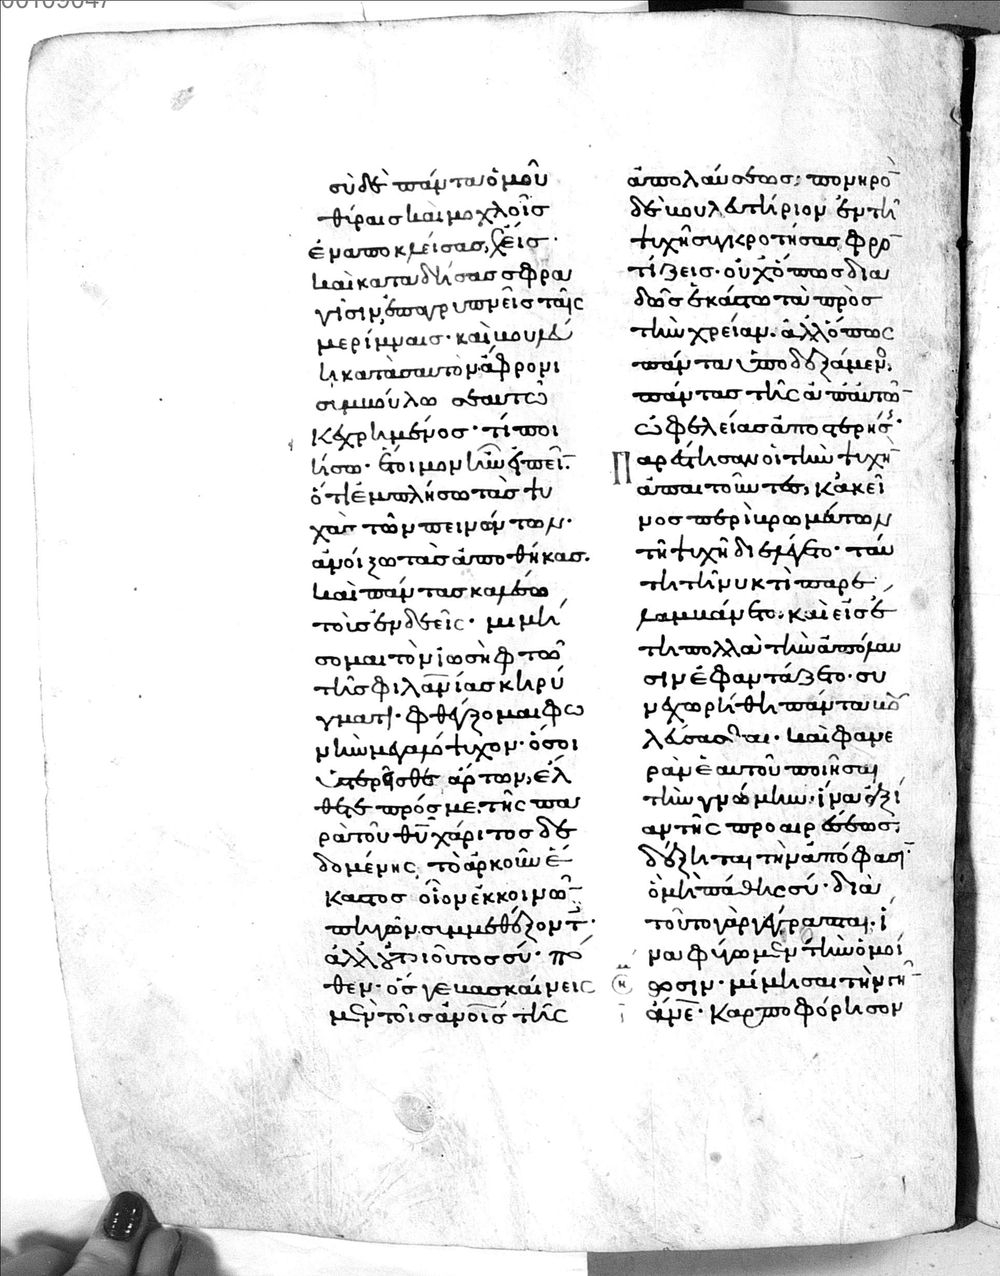 σὺ δὲ πάντα ὁμοῦ
θύραις καὶ μοχλοῖς
ἐναποκλείσας, ἔχεις·
καὶ καταδήσας σφρα
γίσιν, ἐπαγρυπνεῖς ταῖς
μερίμναις· καὶ βουλεύ
ῃ κατὰ σαυτὸν ἄφρονι
συμβούλω σεαυτῶ
κεχρημένος· τί ποι
ήσω· ἕτοιμον ἦν εἰπεῖν
ὅτι ἐμπλήσω τὰς ψυ
χὰς τῶν πεινώντων·
ἀνοίξω τὰς ἀποθήκας.
καὶ πάντας καλέσω
τοὺς ἐνδεεῖς· μιμή
σομαι τὸν ἰωσὴφ τῶ
τῆς φιλανίας κηρύ
γματι· φθέγξομαι φω
νὴν μεγαλόψυχον· ὅσοι
ὑστερῆσθε ἄρτων, ἔλ
θετε πρός με· τῆς πα
ρὰ τοῦ θυ χάριτος δε
δομένης, τὸ ἀρκοῦν ἕ
καστος οἷον ἐκ κοινῶν
πηγῶν συμμεθέξοντ
ἀλλ' οὐ τοιοῦτος σύ· πό
θεν· ὅς γε βασκαίνεις
μὲν τοῖς ἀνοις τῆς
ἀπολαύσεως, πονηρὸν
δὲ βουλευτήριον ἐν τῆ
ψυχῆ συγκροτήσας, φρο
τίζεις· οὐχ ὅπως δια
δῶς ἑκάστω τὰ πρὸς
τὴν χρείαν· ἀλλ' ὅπως
πάντα ὑποδεξάμενος
πάντας τῆς ἀπ' αὐτῶν
ὠφελείας ἀποστερήσῃς·
Παρειστήκεισαν οἱ τὴν ψυχὴν
ἀπαιτοῦντες, κἀκεῖ
νος περὶ βρωμάτων
τῆ ψυχῆ διελέγετο· ταύ
τῃ τῇ νυκτὶ παρε
λαμβάνετο· καὶ εἰς ἔ
τη πολλὰ τὴν ἀπόλαυ
σιν ἐφαντάζετο· συ
νεχωρήθη πάντα βου
λεύσασθαι· καὶ φανε
ρὰν ἑαυτοῦ ποιῆσαι
τὴν γνώμην· ἵνα ἀξί
αν τῆς προαιρέσεως,
δέξηται τὴν ἀπόφασιν·
ὃ μὴ πάθῃς σύ· διὰ
τοῦτο γὰρ γέγραπται· ἵ
να φύγωμεν τὴν ὁμοί
ωσιν· μίμησαι τὴν γῆν
ἄνε· καρποφόρησον